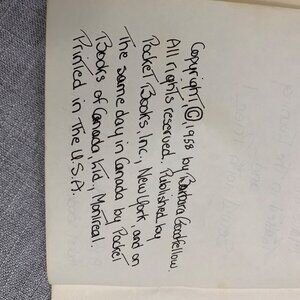 Copyright © 1958 by Barbara Goodfellow.
All rights reserved. Published by
Pocket Books, Inc., New York, and on
the same day in Canada by Pocket
Books of Canada, Ltd., Montreal.
Printed in the U.S.A.